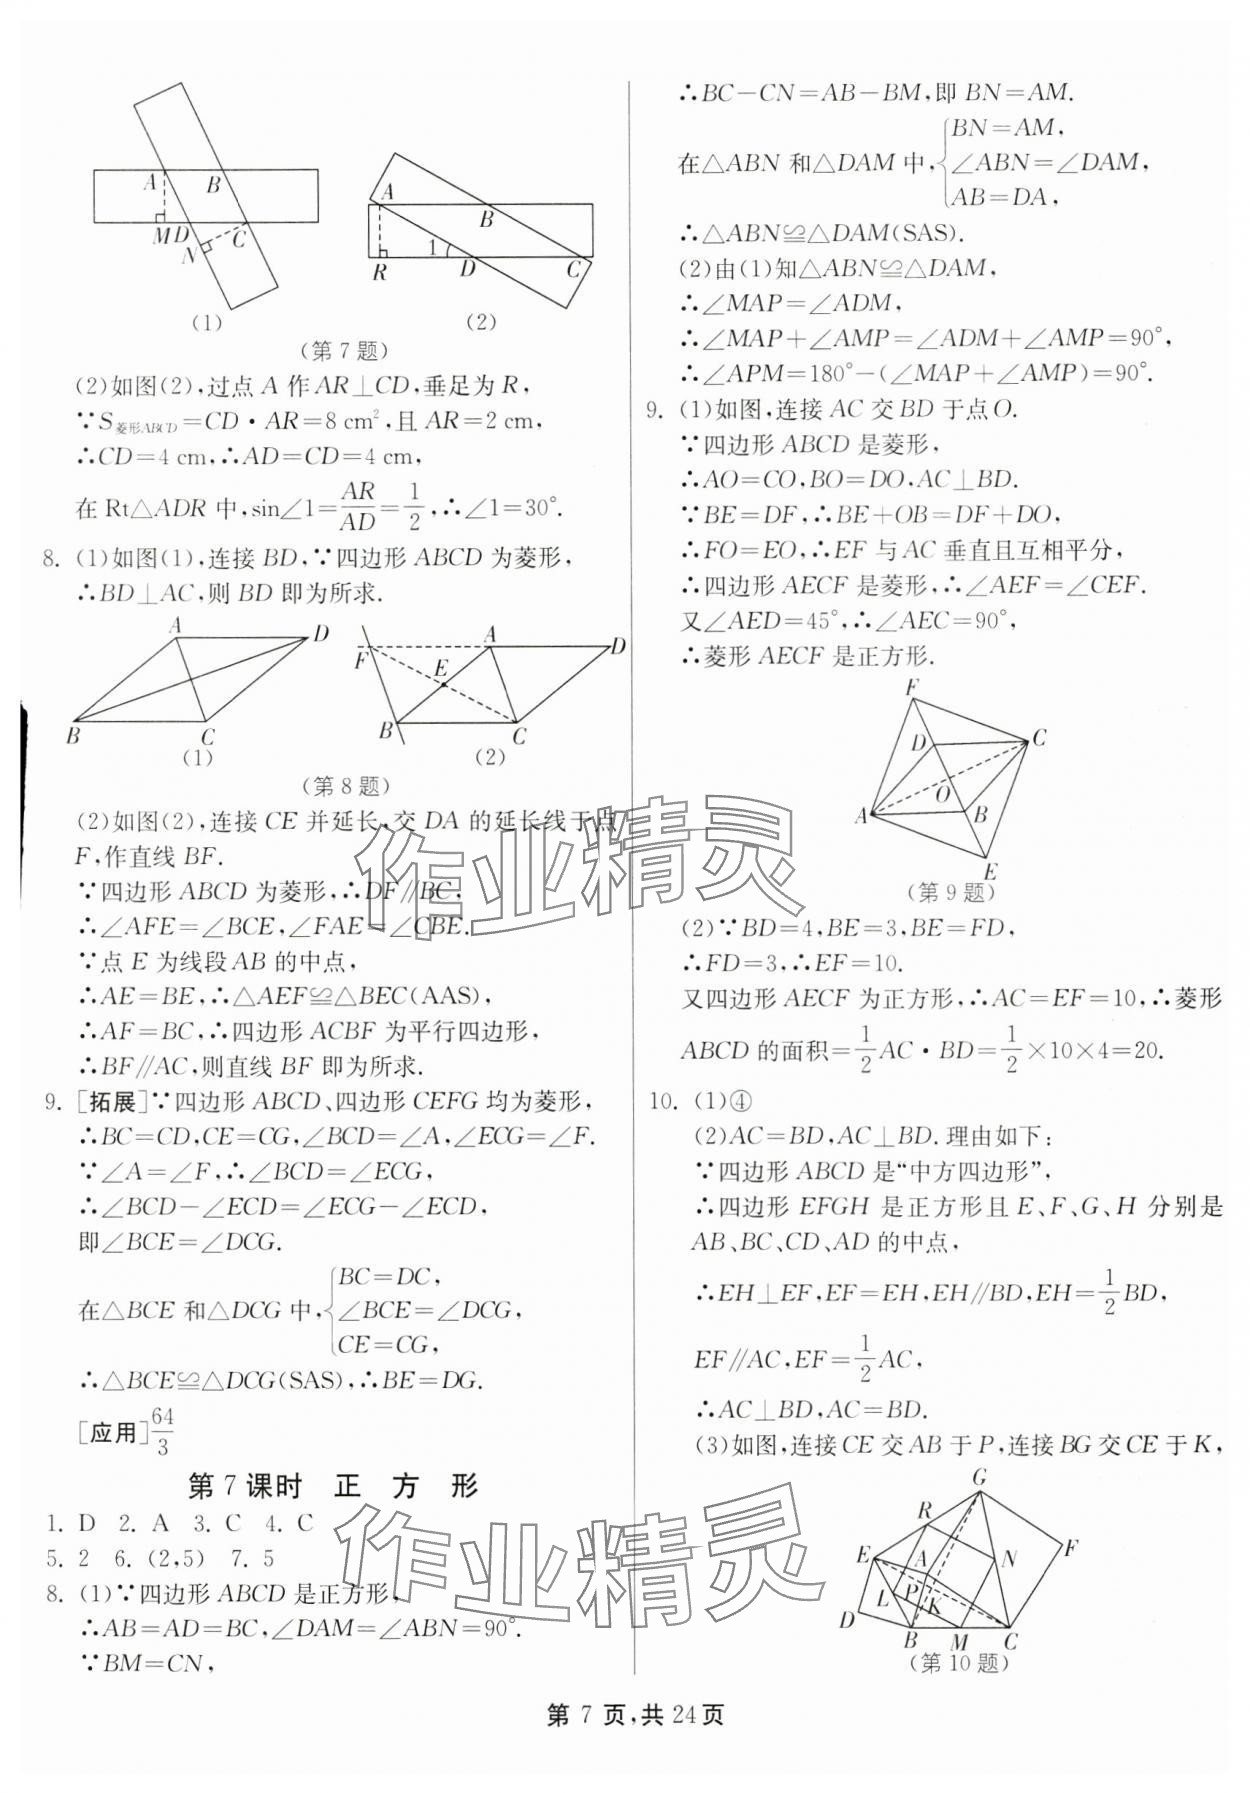 A B M D C N
(1)
A B R 1 D C
(2)
(第7题)
(2)如图(2),过点A作AR⊥CD,垂足为R,
∵S菱形ABCD=CD·AR=8 cm²,且AR=2 cm,
∴CD=4 cm,∴AD=CD=4 cm,
在Rt△ADR中,sin∠1=AR/AD=1/2,∴∠1=30°.
8. (1)如图(1),连接BD,∵四边形ABCD为菱形,
∴BD⊥AC,则BD即为所求.
A D B C
(1)
F A D E B C
(2)
(第8题)
(2)如图(2),连接CE并延长,交DA的延长线于点
F,作直线BF.
∵四边形ABCD为菱形,∴DF∥BC,
∴∠AFE=∠BCE,∠FAE=∠CBE.
∵点E为线段AB的中点,
∴AE=BE,∴△AEF≌△BEC(AAS),
∴AF=BC,∴四边形ACBF为平行四边形,
∴BF∥AC,则直线BF即为所求.
9. [拓展]∵四边形ABCD、四边形CEFG均为菱形,
∴BC=CD,CE=CG,∠BCD=∠A,∠ECG=∠F.
∵∠A=∠F,∴∠BCD=∠ECG,
∴∠BCD-∠ECD=∠ECG-∠ECD,
即∠BCE=∠DCG.
在△BCE和△DCG中,{BC=DC,
∠BCE=∠DCG,
CE=CG,
∴△BCE≌△DCG(SAS),∴BE=DG.
[应用]64/3
第7课时 正方形
1. D 2. A 3. C 4. C
5. 2 6. (2,5) 7. 5
8. (1)∵四边形ABCD是正方形,
∴AB=AD=BC,∠DAM=∠ABN=90°.
∵BM=CN,
∴BC-CN=AB-BM,即BN=AM.
在△ABN和△DAM中,{BN=AM,
∠ABN=∠DAM,
AB=DA,
∴△ABN≌△DAM(SAS).
(2)由(1)知△ABN≌△DAM,
∴∠MAP=∠ADM,
∴∠MAP+∠AMP=∠ADM+∠AMP=90°,
∴∠APM=180°-(∠MAP+∠AMP)=90°.
9. (1)如图,连接AC交BD于点O.
∵四边形ABCD是菱形,
∴AO=CO,BO=DO,AC⊥BD.
∵BE=DF,∴BE+OB=DF+DO,
∴FO=EO,∴EF与AC垂直且互相平分,
∴四边形AECF是菱形,∴∠AEF=∠CEF.
又∠AED=45°,∴∠AEC=90°,
∴菱形AECF是正方形.
F D C O A B E
(第9题)
(2)∵BD=4,BE=3,BE=FD,
∴FD=3,∴EF=10.
又四边形AECF为正方形,∴AC=EF=10,∴菱形
ABCD的面积=1/2AC·BD=1/2×10×4=20.
10. (1)④
(2)AC=BD,AC⊥BD.理由如下:
∵四边形ABCD是“中方四边形”,
∴四边形EFGH是正方形且E、F、G、H分别是
AB、BC、CD、AD的中点,
∴EH⊥EF,EF=EH,EH∥BD,EH=1/2BD,
EF∥AC,EF=1/2AC,
∴AC⊥BD,AC=BD.
(3)如图,连接CE交AB于P,连接BG交CE于K,
G R E A N F L P K D B M C
(第10题)
作业精灵
作业精灵
第7页,共24页